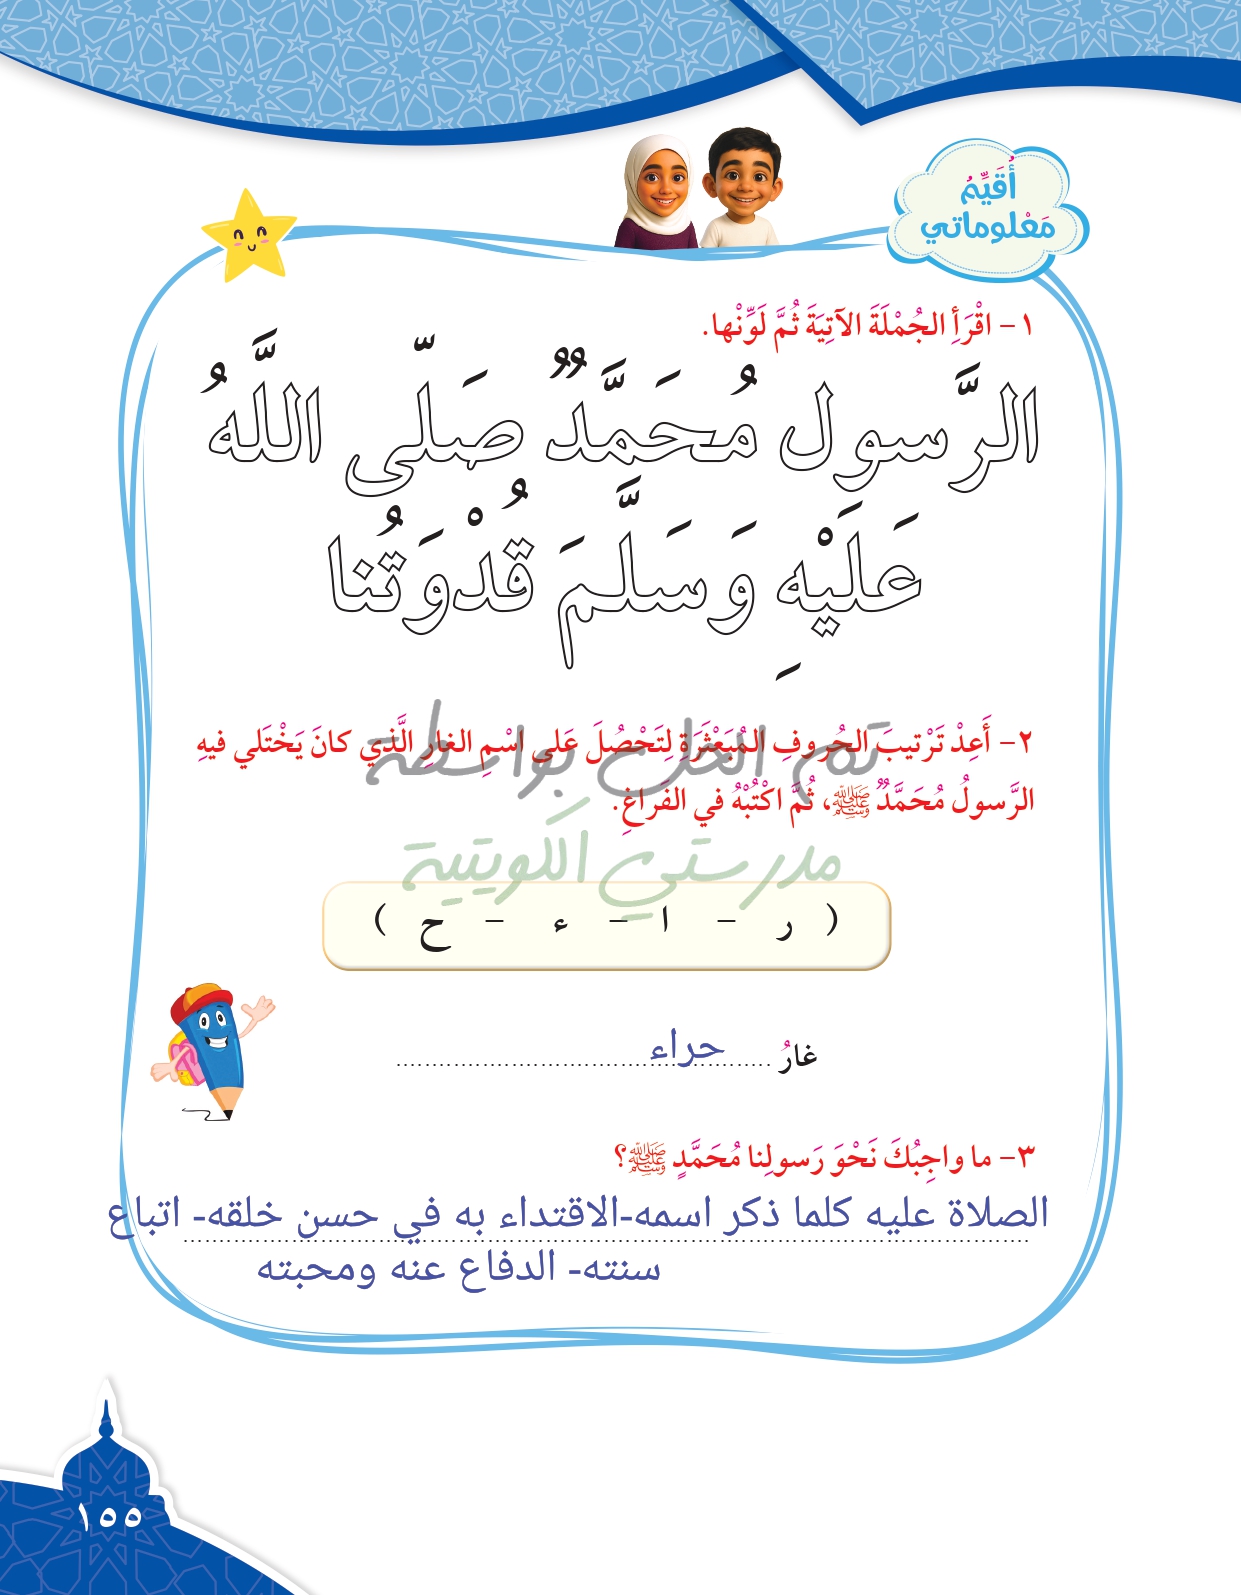 أُقَيِّمُ
مَعْلوماتي
١- اقْرَأِ الجُمْلَةَ الآتِيَةَ ثُمَّ لَوِّنْها.
الرَّسول مُحَمَّدٌ صَلّى اللَّهُ
عَلَيْهِ وَسَلَّمَ قُدْوَتُنا
٢- أَعِدْ تَرْتيبَ الحُروفِ المُبَعْثَرَةِ لِتَحْصُلَ عَلى اسْمِ الغارِ الَّذي كانَ يَخْتَلي فيهِ
الرَّسولُ مُحَمَّدٌ ﷺ، ثُمَّ اكْتُبْهُ في الفَراغِ.
تم الحل بواسطة
مدرستي الكويتية
( ر - ا - ء - ح )
غارُ حراء
٣- ما واجِبُكَ نَحْوَ رَسولِنا مُحَمَّدٍ ﷺ؟
الصلاة عليه كلما ذكر اسمه-الاقتداء به في حسن خلقه- اتباع
سنته- الدفاع عنه ومحبته
١٥٥